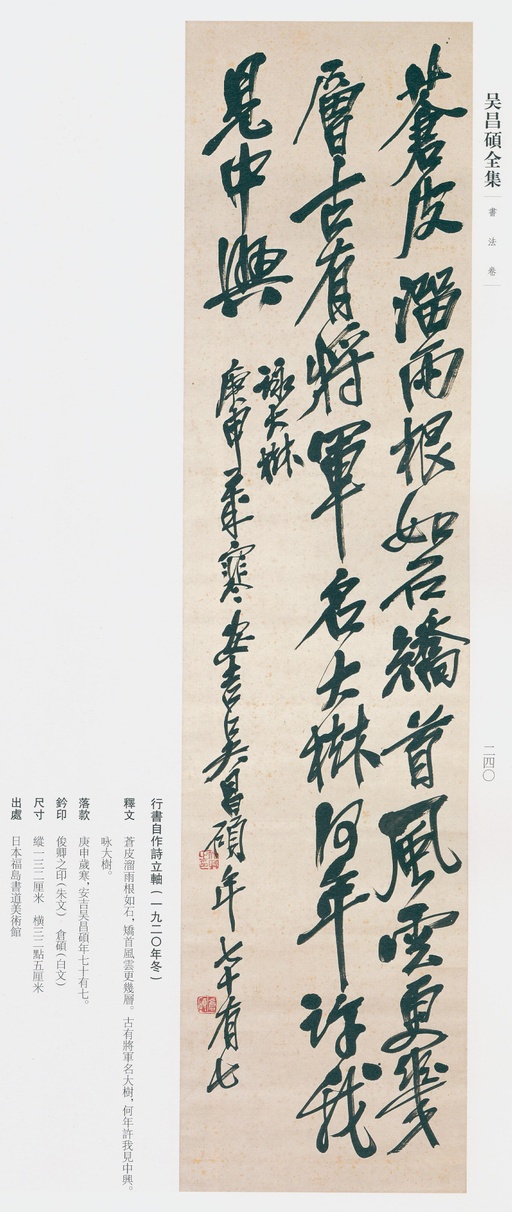 吴昌碩全集
書法卷
二四〇
蒼皮溜雨根如石矯首風雲更幾
層古有將軍名大樹何年許我
見中興
詠大樹
庚申歲寒安吉吳昌碩年七十有七
行書自作詩立軸(一九二〇年冬)
釋文 蒼皮溜雨根如石,矯首風雲更幾層。古有將軍名大樹,何年許我見中興。
咏大樹。
落款 庚申歲寒,安吉吴昌碩年七十有七。
鈐印 俊卿之印(朱文) 倉碩(白文)
尺寸 縱一三二厘米 橫三二點五厘米
出處 日本福島書道美術館